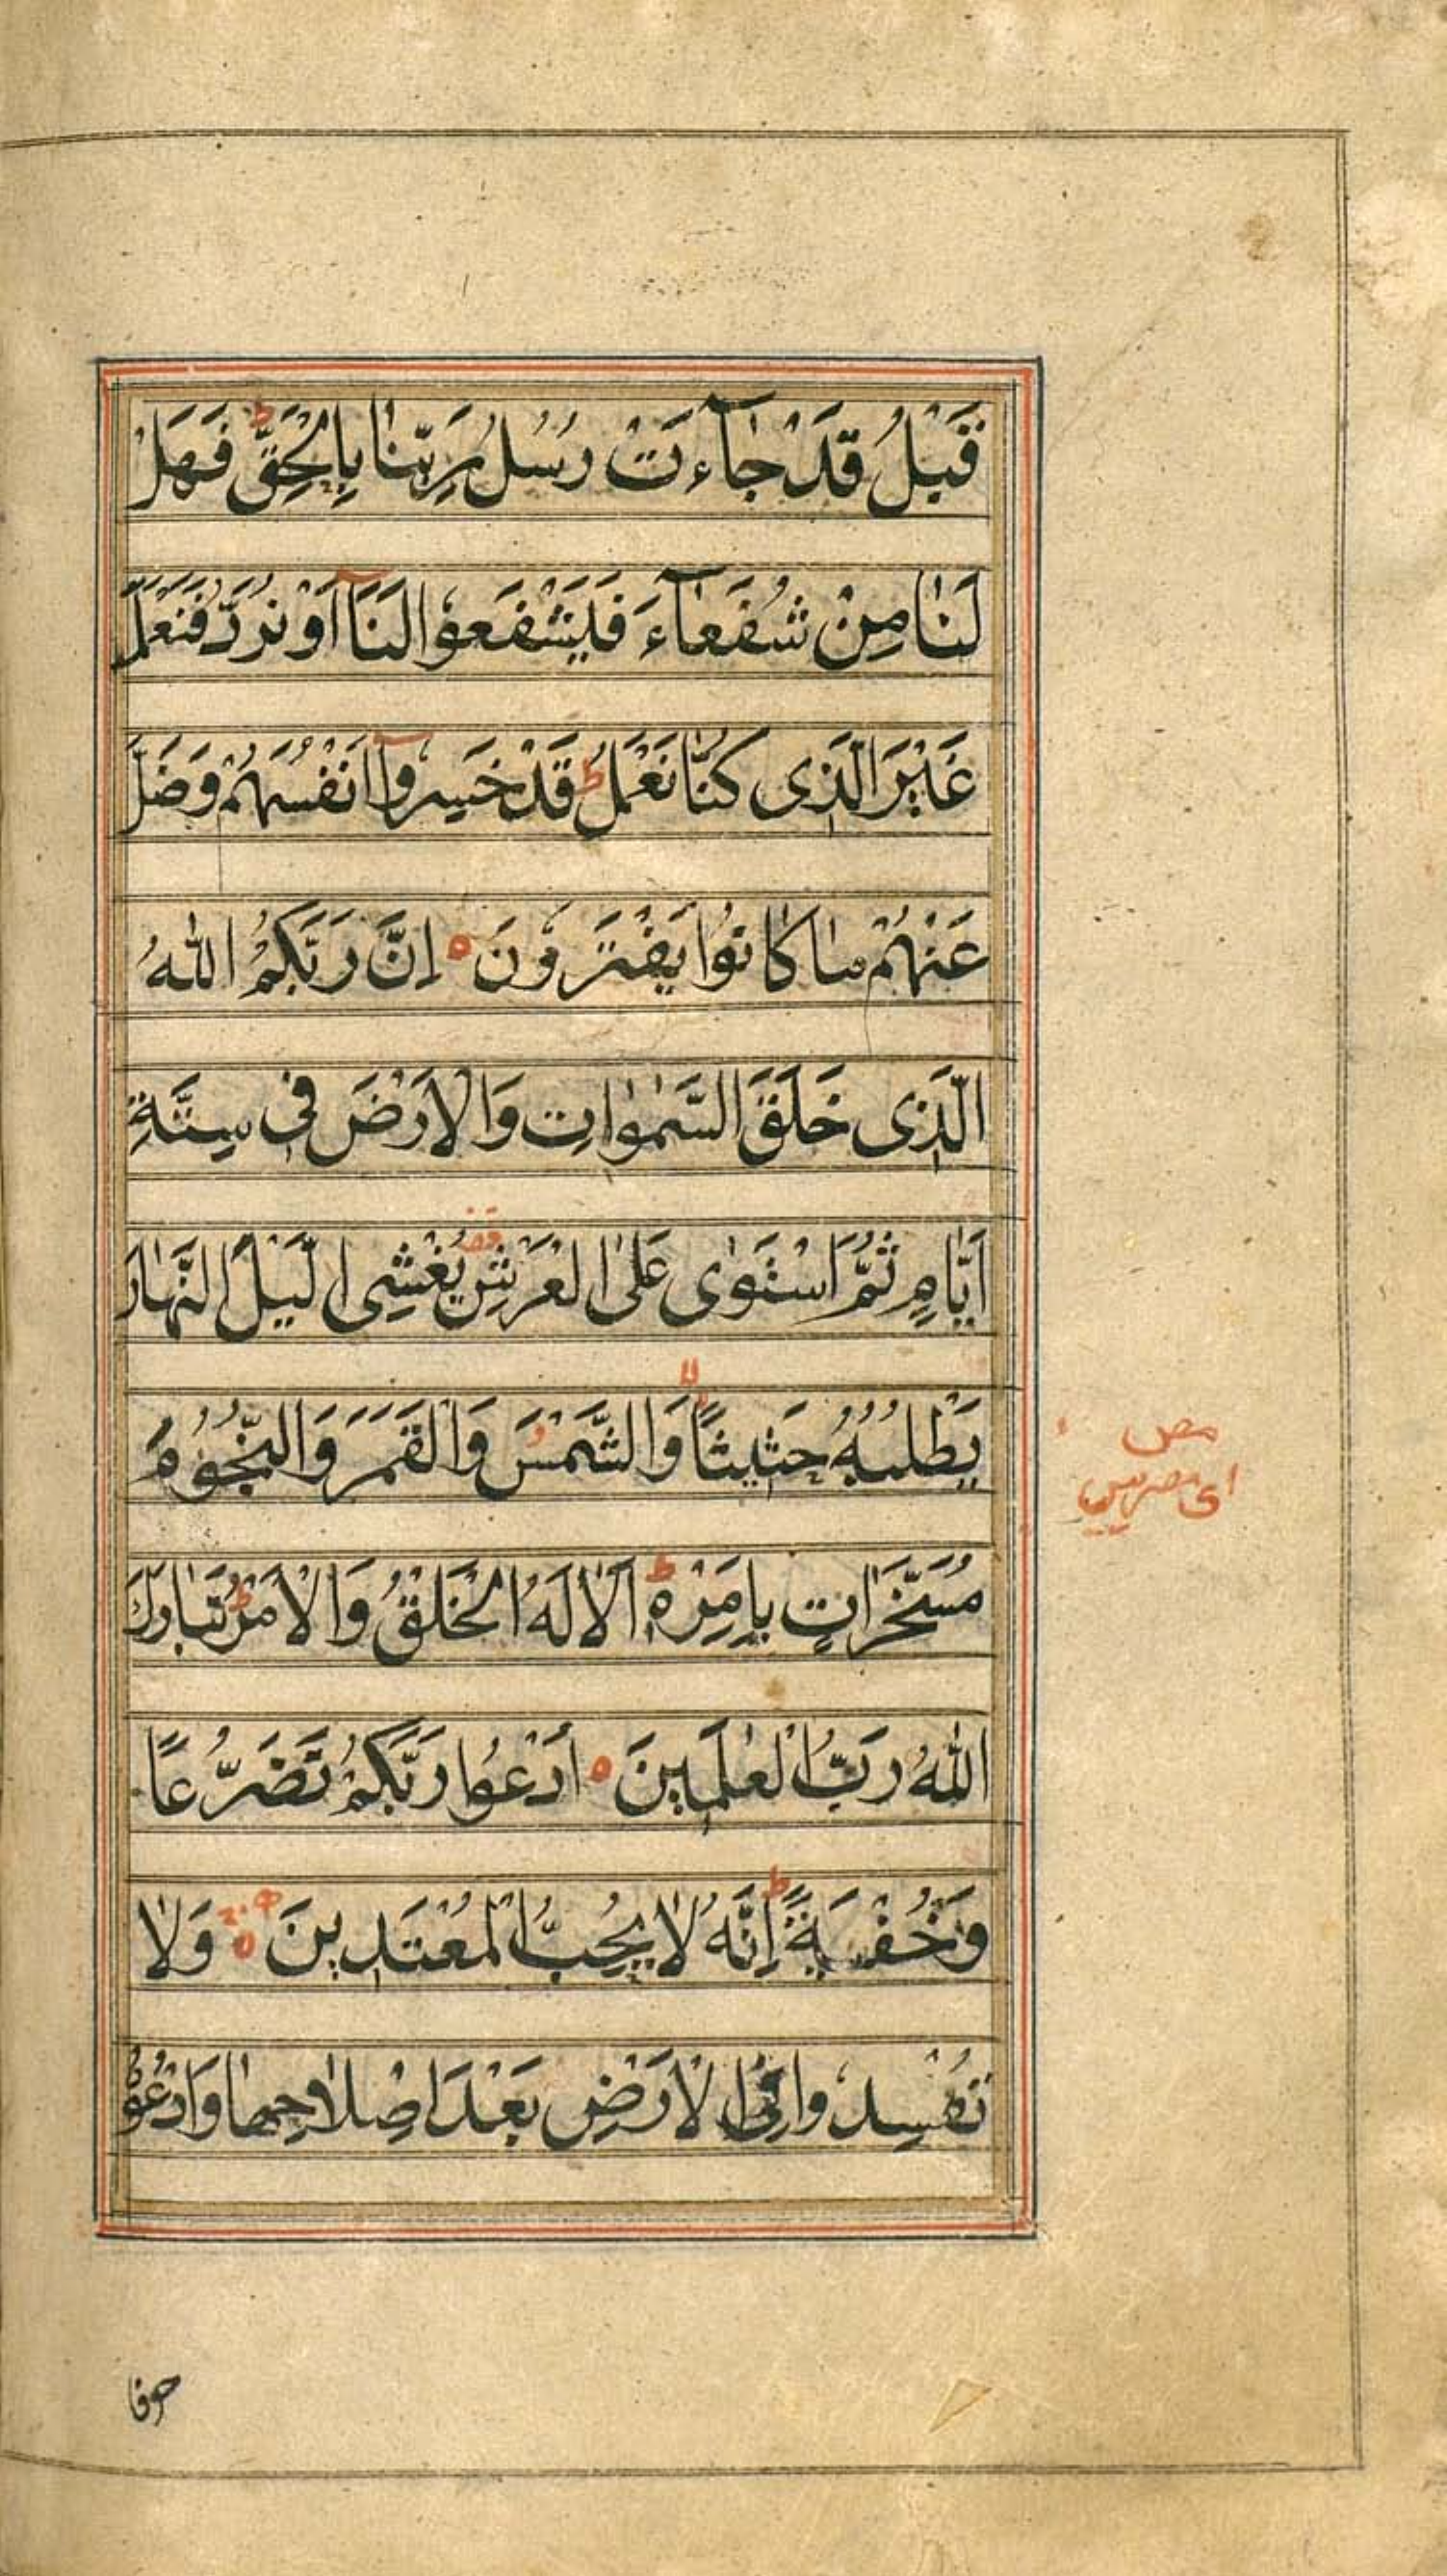 قَبْلُ قَدْ جَآءَتْ رُسُلُ رَبِّنَا بِالْحَقِّ ط فَهَلْ
لَنَا مِنْ شُفَعَآءَ فَيَشْفَعُوا لَنَآ اَوْ نُرَدُّ فَنَعْمَلَ
غَيْرَ الَّذِى كُنَّا نَعْمَلُ ط قَدْ خَسِرُوآ اَنْفُسَهُمْ وَضَلَّ
عَنْهُمْ مَا كَانُوا يَفْتَرُونَ ه اِنَّ رَبَّكُمُ اللّٰهُ
الَّذِى خَلَقَ السَّمٰوٰاتِ وَالْاَرْضَ فِى سِتَّةِ
اَيَّامٍ ثُمَّ اسْتَوٰى عَلَى الْعَرْشِ قف يُغْشِى الَّيْلَ النَّهَارَ
يَطْلُبُهُ حَثِيثًا لا وَالشَّمْسَ وَالْقَمَرَ وَالنُّجُومَ
مُسَخَّرَاتٍ بِاَمْرِهِ ط اَلَا لَهُ الْخَلْقُ وَالْاَمْرُ ط تَبَارَكَ
اللّٰهُ رَبُّ الْعٰلَمِينَ ه اُدْعُوا رَبَّكُمْ تَضَرُّعًا
وَخُفْيَةً ط اِنَّهُ لَا يُحِبُّ الْمُعْتَدِينَ ه وَلَا
تُفْسِدُوا فِى الْاَرْضِ بَعْدَ اِصْلَاحِهَا وَادْعُوهُ
مص
خوفا